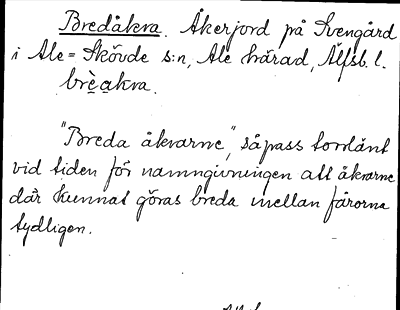 Bredåkra. Åkerjord på Svengård
i Ale-Skövde s:n, Ale härad, Älfsb. l.
brèakra.
"Breda åkrarne", såpass tordänt
vid tiden för namngivningen att åkrarne
där kunnat göras breda mellan fårorna
tydligen.